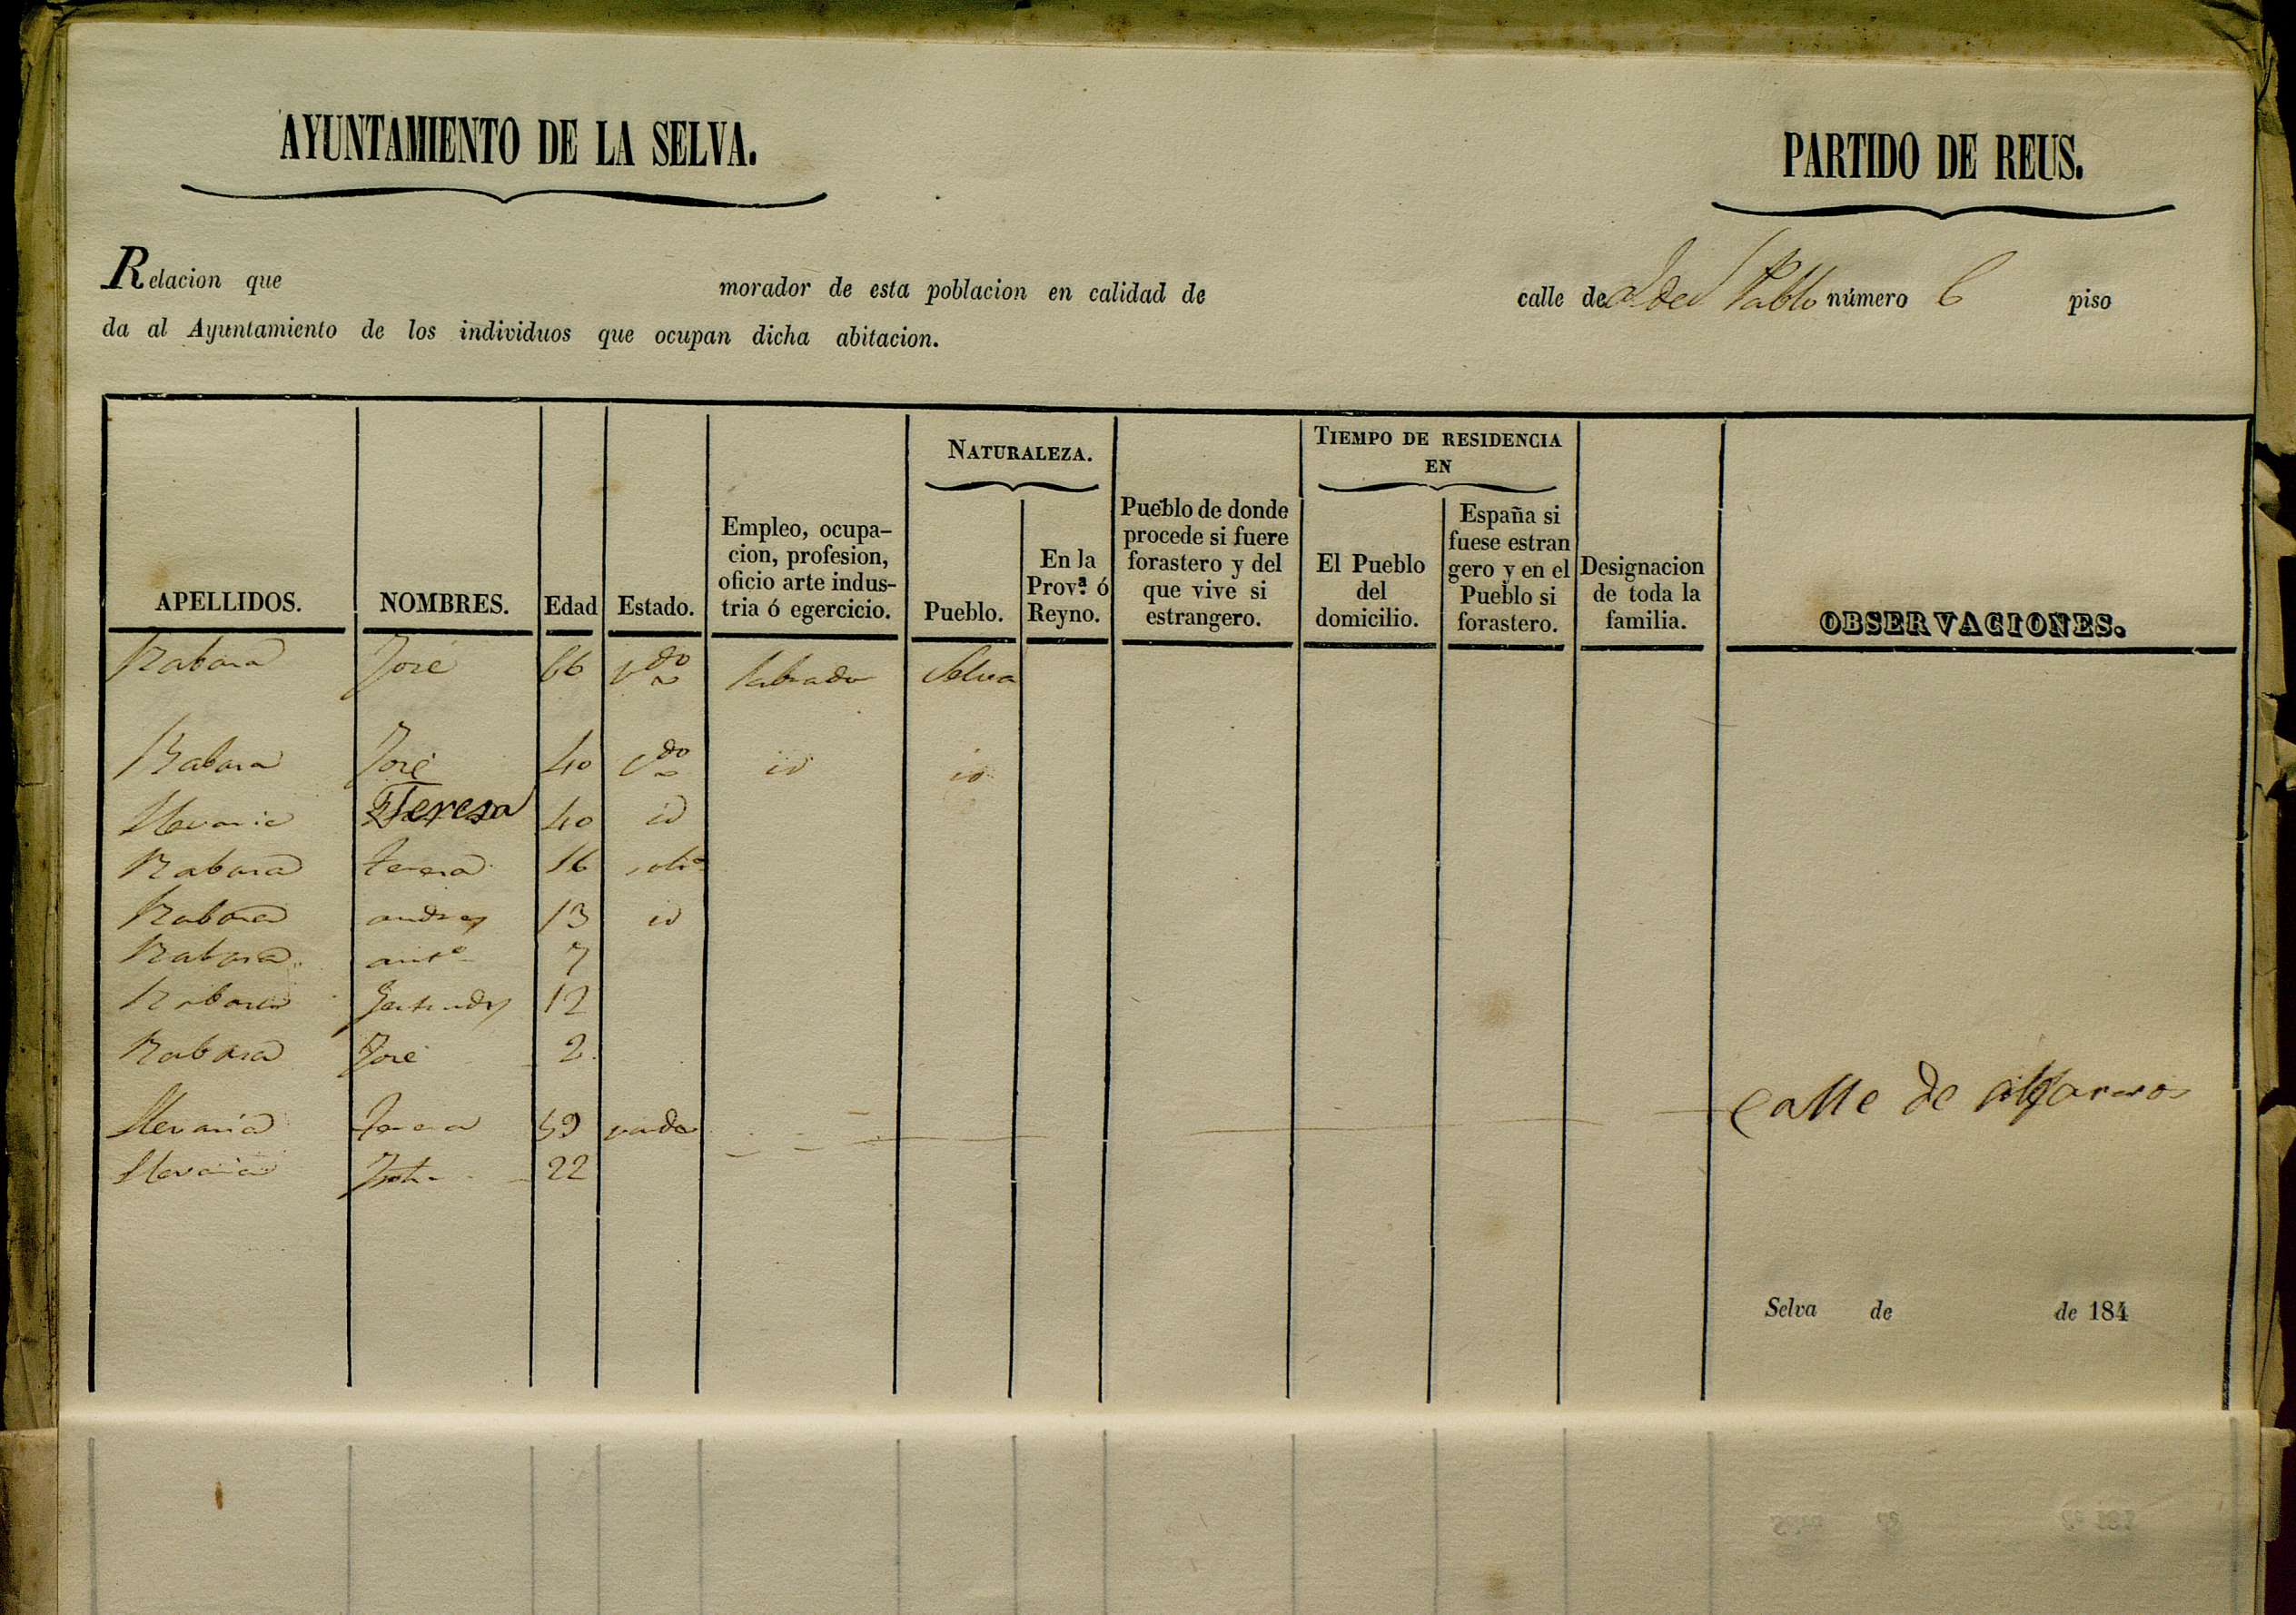 AYUNTAMIENTO DE LA SELVA.
PARTIDO DE REUS.
Relacion que morador de esta poblacion en calidad de calle de Pablo número 6 piso
da al Ayuntamiento de los individuos que ocupan dicha abitacion.
APELLIDOS. NOMBRES. Edad Estado. Empleo, ocupa-cion, profesion, oficio arte indus-tria ó egercicio. NATURALEZA. Pueblo. En la Provª ó Reyno. Pueblo de donde procede si fuere forastero y del que vive si estrangero. TIEMPO DE RESIDENCIA EN El Pueblo del domicilio. España si fuese estran gero y en el Pueblo si forastero. Designacion de toda la familia. OBSERVACIONES.
Rabasa José 66 Vdo labrador Selva
Rabasa José 40 Cdo id id
Teresa 40 id
Rabasa teresa 16 solt
Rabasa andres 13 id
Rabasa antº 7
Rabasa Gertrudes 12
Rabasa José 2
Teresa 59 viuda calle de alfareros
22
Selva de de 184